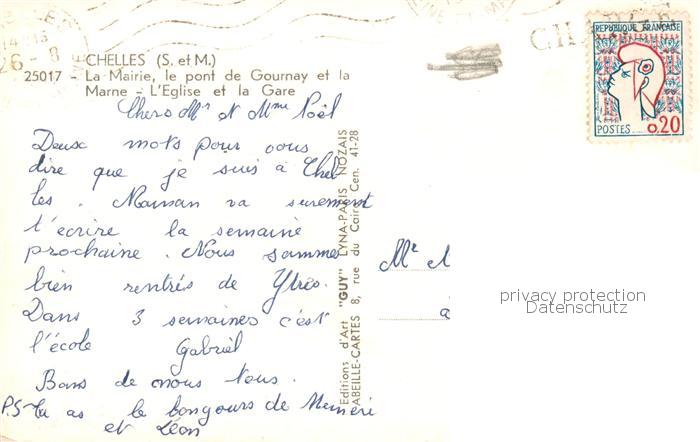 26-8
CHELLES (S. et M.)
25017 - La Mairie, le pont de Gournay et la
Marne - L'Eglise et la Gare
REPUBLIQUE FRANCAISE
POSTES 0,20
Chers Mr et Mme Poël
Deux mots pour vous
dire que je suis à Chel
les. Maman va surement
t'écrire la semaine
prochaine. Nous sommes
bien rentrés de Ytres.
Dans 3 semaines c'est
l'école Gabriel
Bons de nous tous.
P.S-tu as le bongours de Meméré
et Léon
Editions d'Art "GUY" LYNA-PARIS NOZAIS
ABEILLE-CARTES 8, rue du Caire Cen. 41-28
Mr
a
privacy protection
Datenschutz